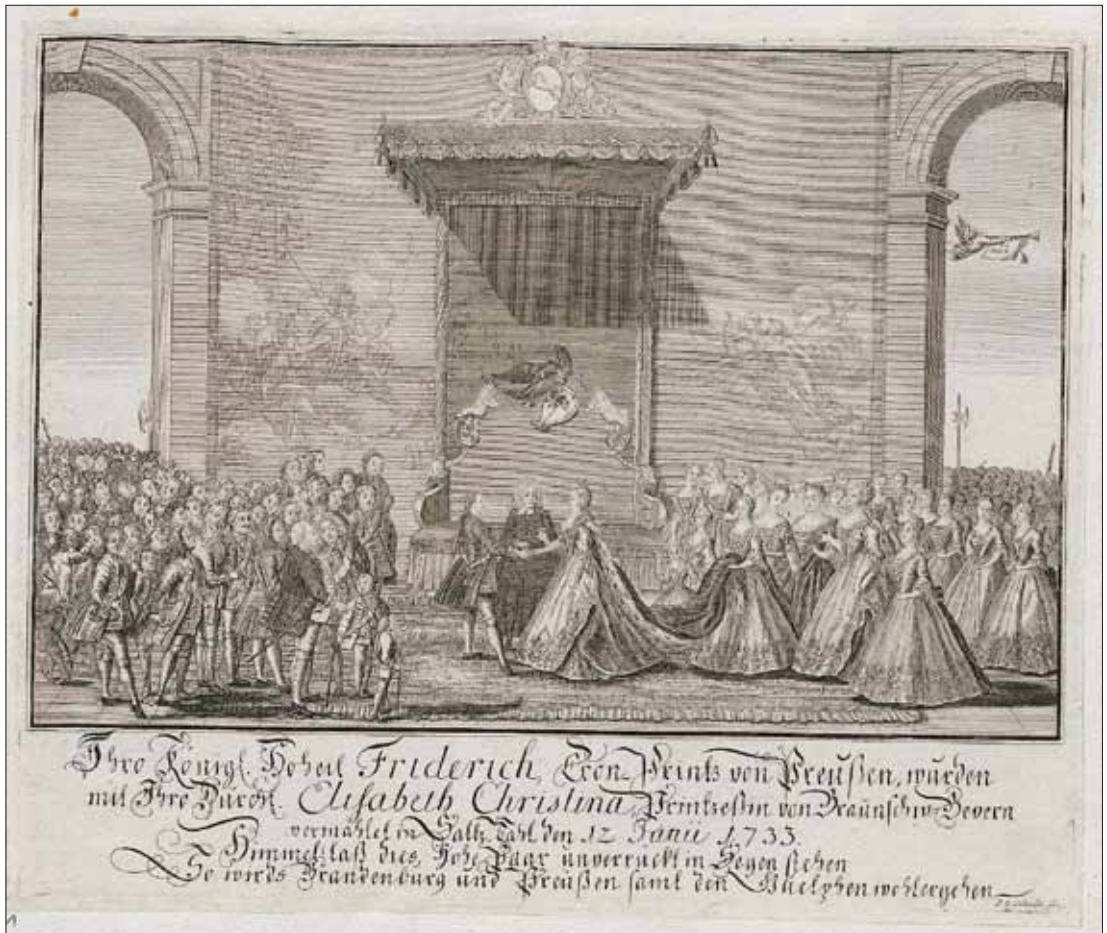 Ihro Königl. Hoheit Friderich, Cron-Printz von Preußen, wurden
mit Ihro Durchl. Elisabeth Christina, Printzeßin von Braunschw. Bevern
vermählet in Saltz Dahl den 12 Junii 1733.
Himmel laß dies Hohe Paar unverruckt in Segen stehen
So wirds Brandenburg und Preußen samt den Guelphen wohlergehen